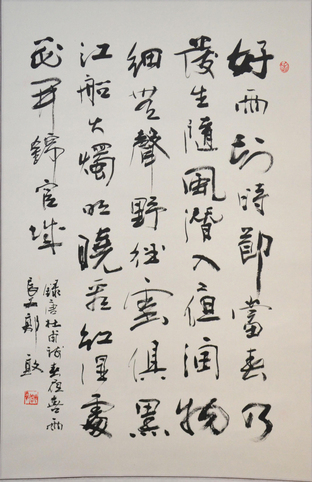 好雨知時節當春乃
發生隨風潛入夜潤物
細無聲野徑雲俱黑
江船火燭明曉看紅濕處
花重錦官城
錄書杜甫詩春夜喜雨